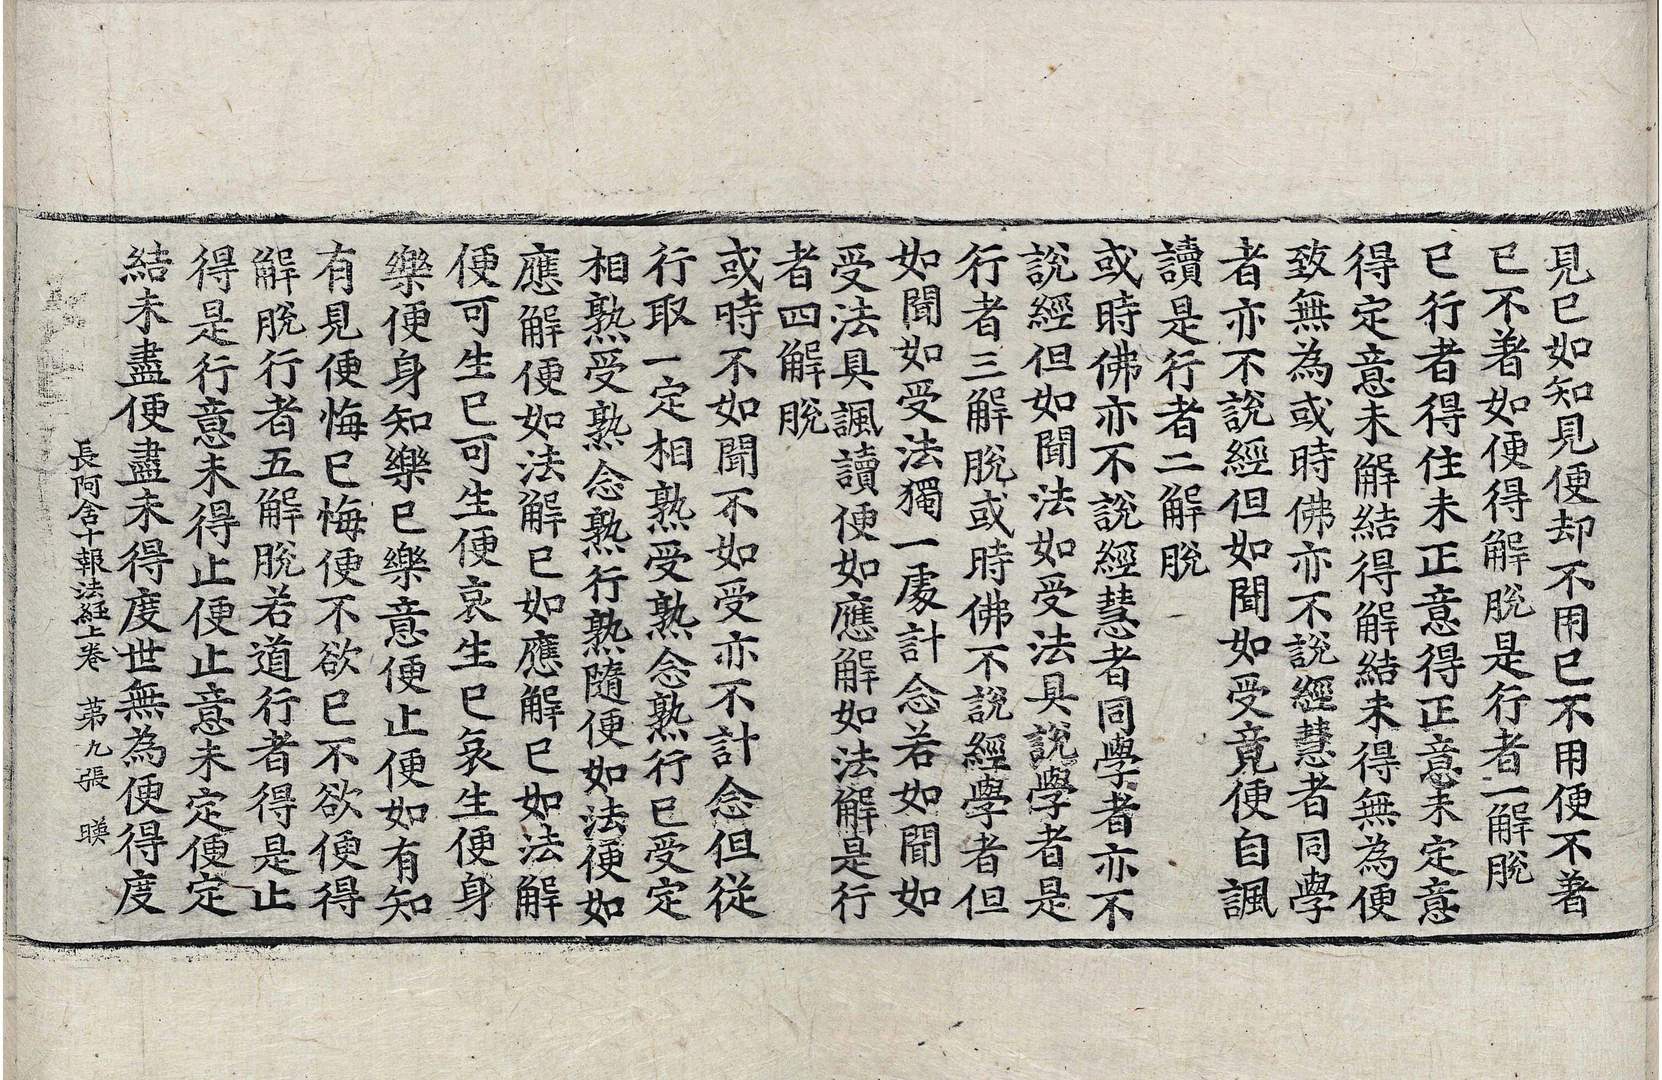 見已如知見便却不用已不用便不著
已不著如便得解脫是行者一解脫
已行者得住未正意得正意未定意
得定意未解結得解結未得無為便
致無為或時佛亦不說經慧者同學
者亦不說經但如聞如受竟便自諷
讀是行者二解脫
或時佛亦不說經慧者同學者亦不
說經但如聞法如受法具說學者是
行者三解脫或時佛不說經學者但
如聞如受法獨一處計念若如聞如
受法具諷讀便如應解如法解是行
者四解脫
或時不如聞不如受亦不計念但從
行取一定相熟受熟念熟行已受定
相熟受熟念熟行熟隨便如法便如
應解便如法解已如應解已如法解
便可生已可生便哀生已哀生便身
樂便身知樂已樂意便止便如有知
有見便悔已悔便不欲已不欲便得
解脫行者五解脫若道行者得是止
得是行意未得止便止意未定便定
結未盡便盡未得度世無為便得度
長阿含十報法經上卷 第九張 暎